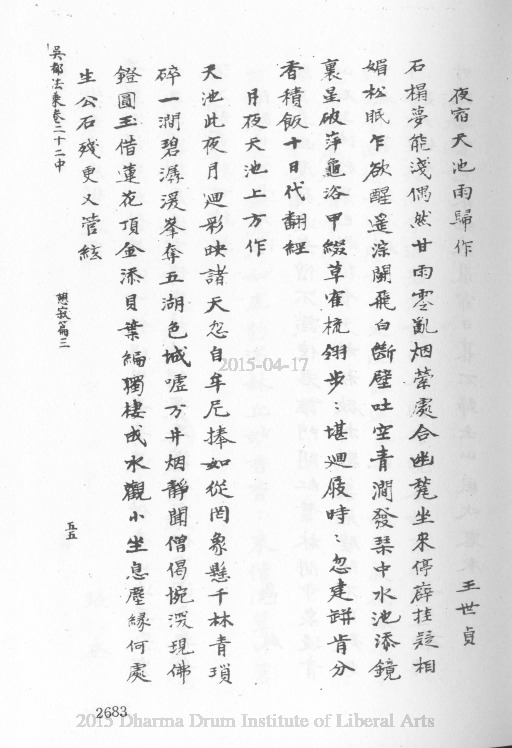 夜宿天池雨歸作
王世貞
石榻夢能淺偶然甘雨零亂烟縈處合幽甃坐來停薜挂疑相
媚松眠乍欲醒遙淙開飛白斷壁吐空青澗發琹中水池添鏡
裏星破萍龜浴甲綴草雀梳翎步〻堪迴屐時〻忽建缾肯分
香積飯十日代翻經
月夜天池上方作
天池此夜月迴彩映諸天忽自牟尼捧如從罔象懸千林青瑣
碎一澗碧潺湲峯奪五湖色城噓万井烟靜聞僧偈惋深現佛
鐙圓玉借蓮花頂金添貝葉編獨棲成水觀小坐息塵緣何處
生公石殘更又管絃
吳都法乘卷二十二中
憩寂篇三
五五
2683
2015-04-17
2015 Dharma Drum Institute of Liberal Arts